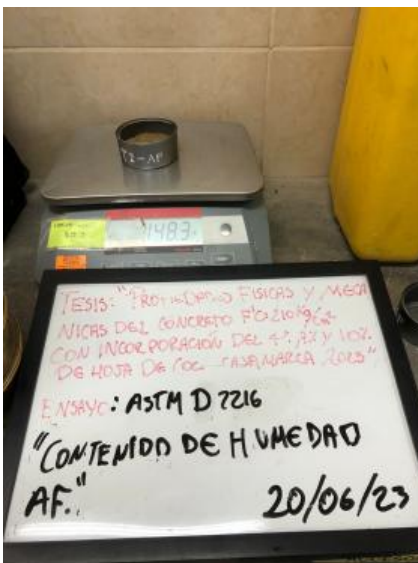 T2-AF
148.3
TESIS: "PROPIEDADES FISICAS Y MECA
NICAS DEL CONCRETO F'C 210 Kg/cm2
CON INCORPORACIÓN DEL 4%, 7% Y 10%
DE HOJA DE CAJAMARCA 2023"
ENSAYO: ASTM D 2216
"CONTENIDO DE HUMEDAD
AF."
20/06/23